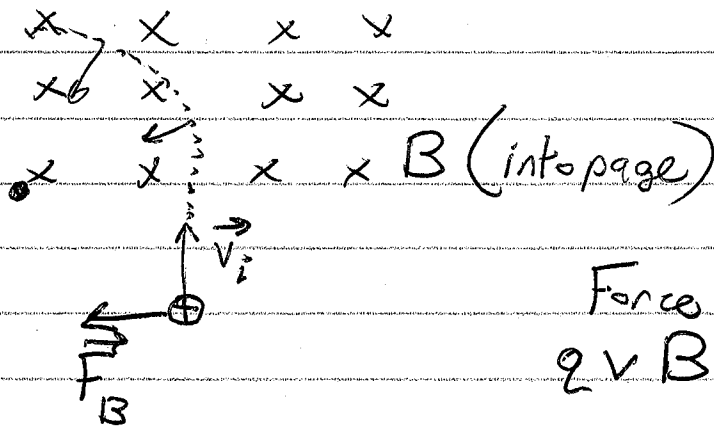 x x x x
x x x x
x x x x B (into page)
v_i
Force
F_B
q v B